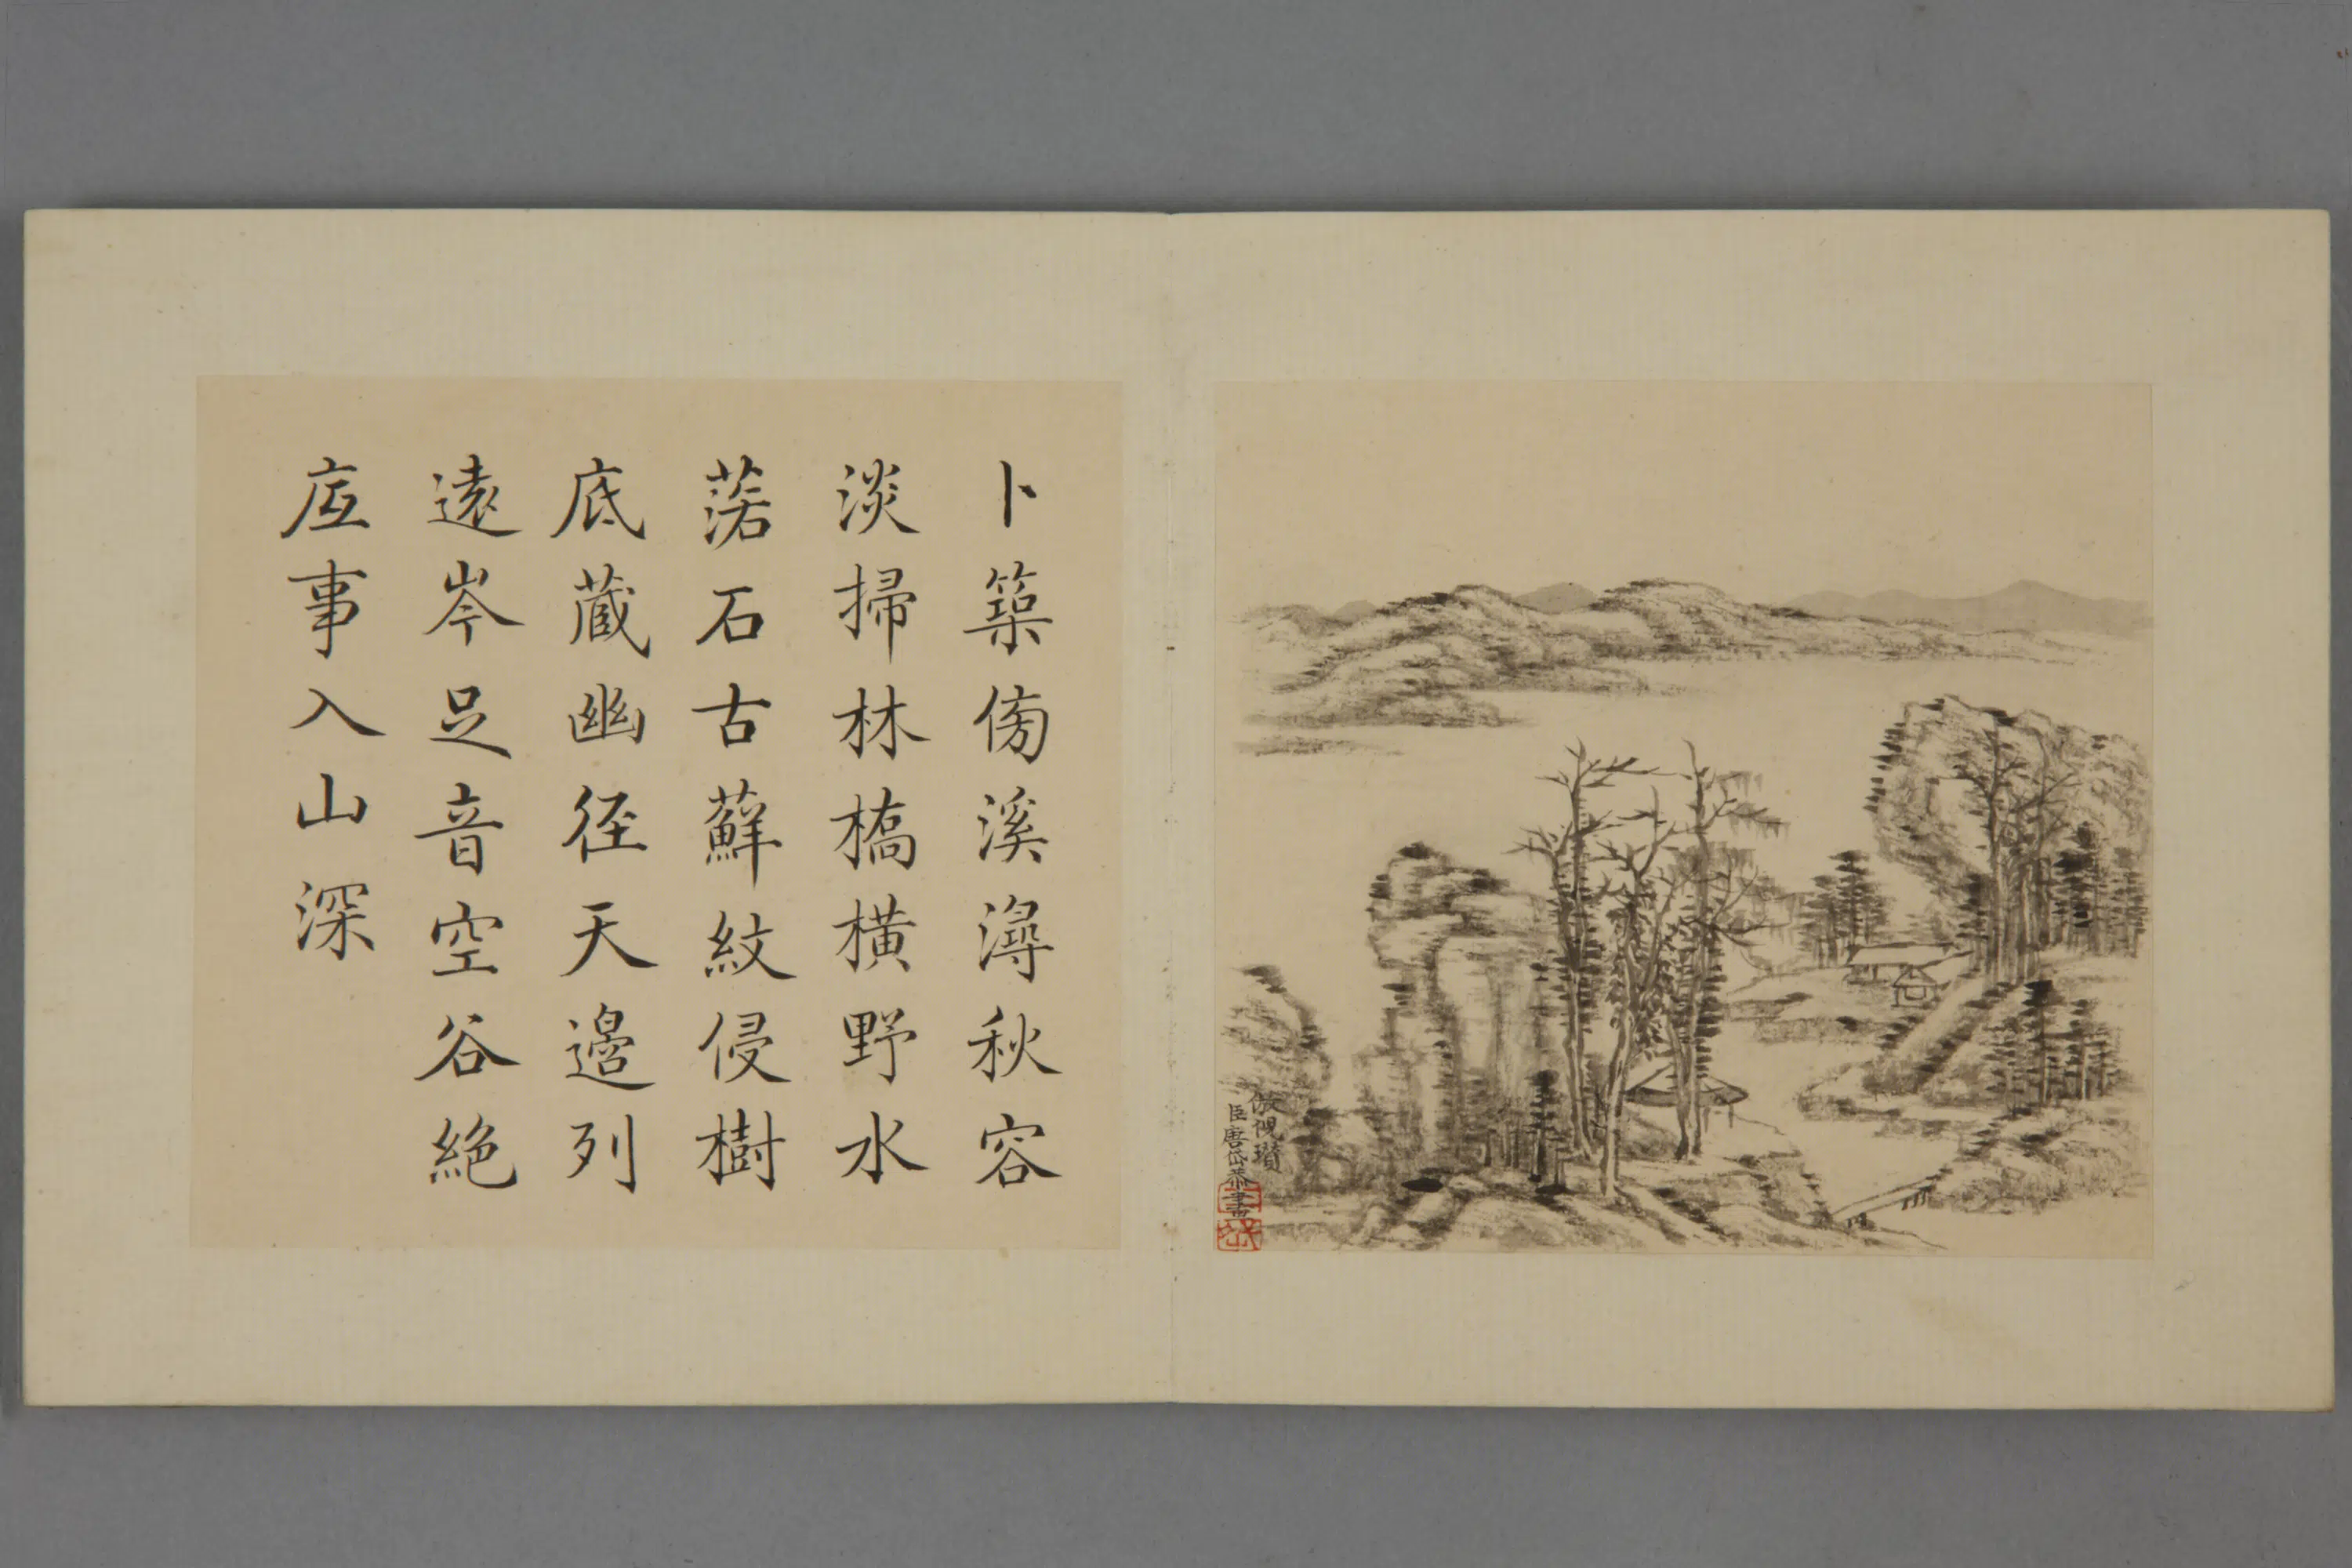 卜築傍溪潯秋容
淡掃林橋橫野水
落石古蘚紋侵樹
底藏幽徑天邊列
遠岑足音空谷絕
底事入山深
倣倪瓚
臣唐岱恭畫